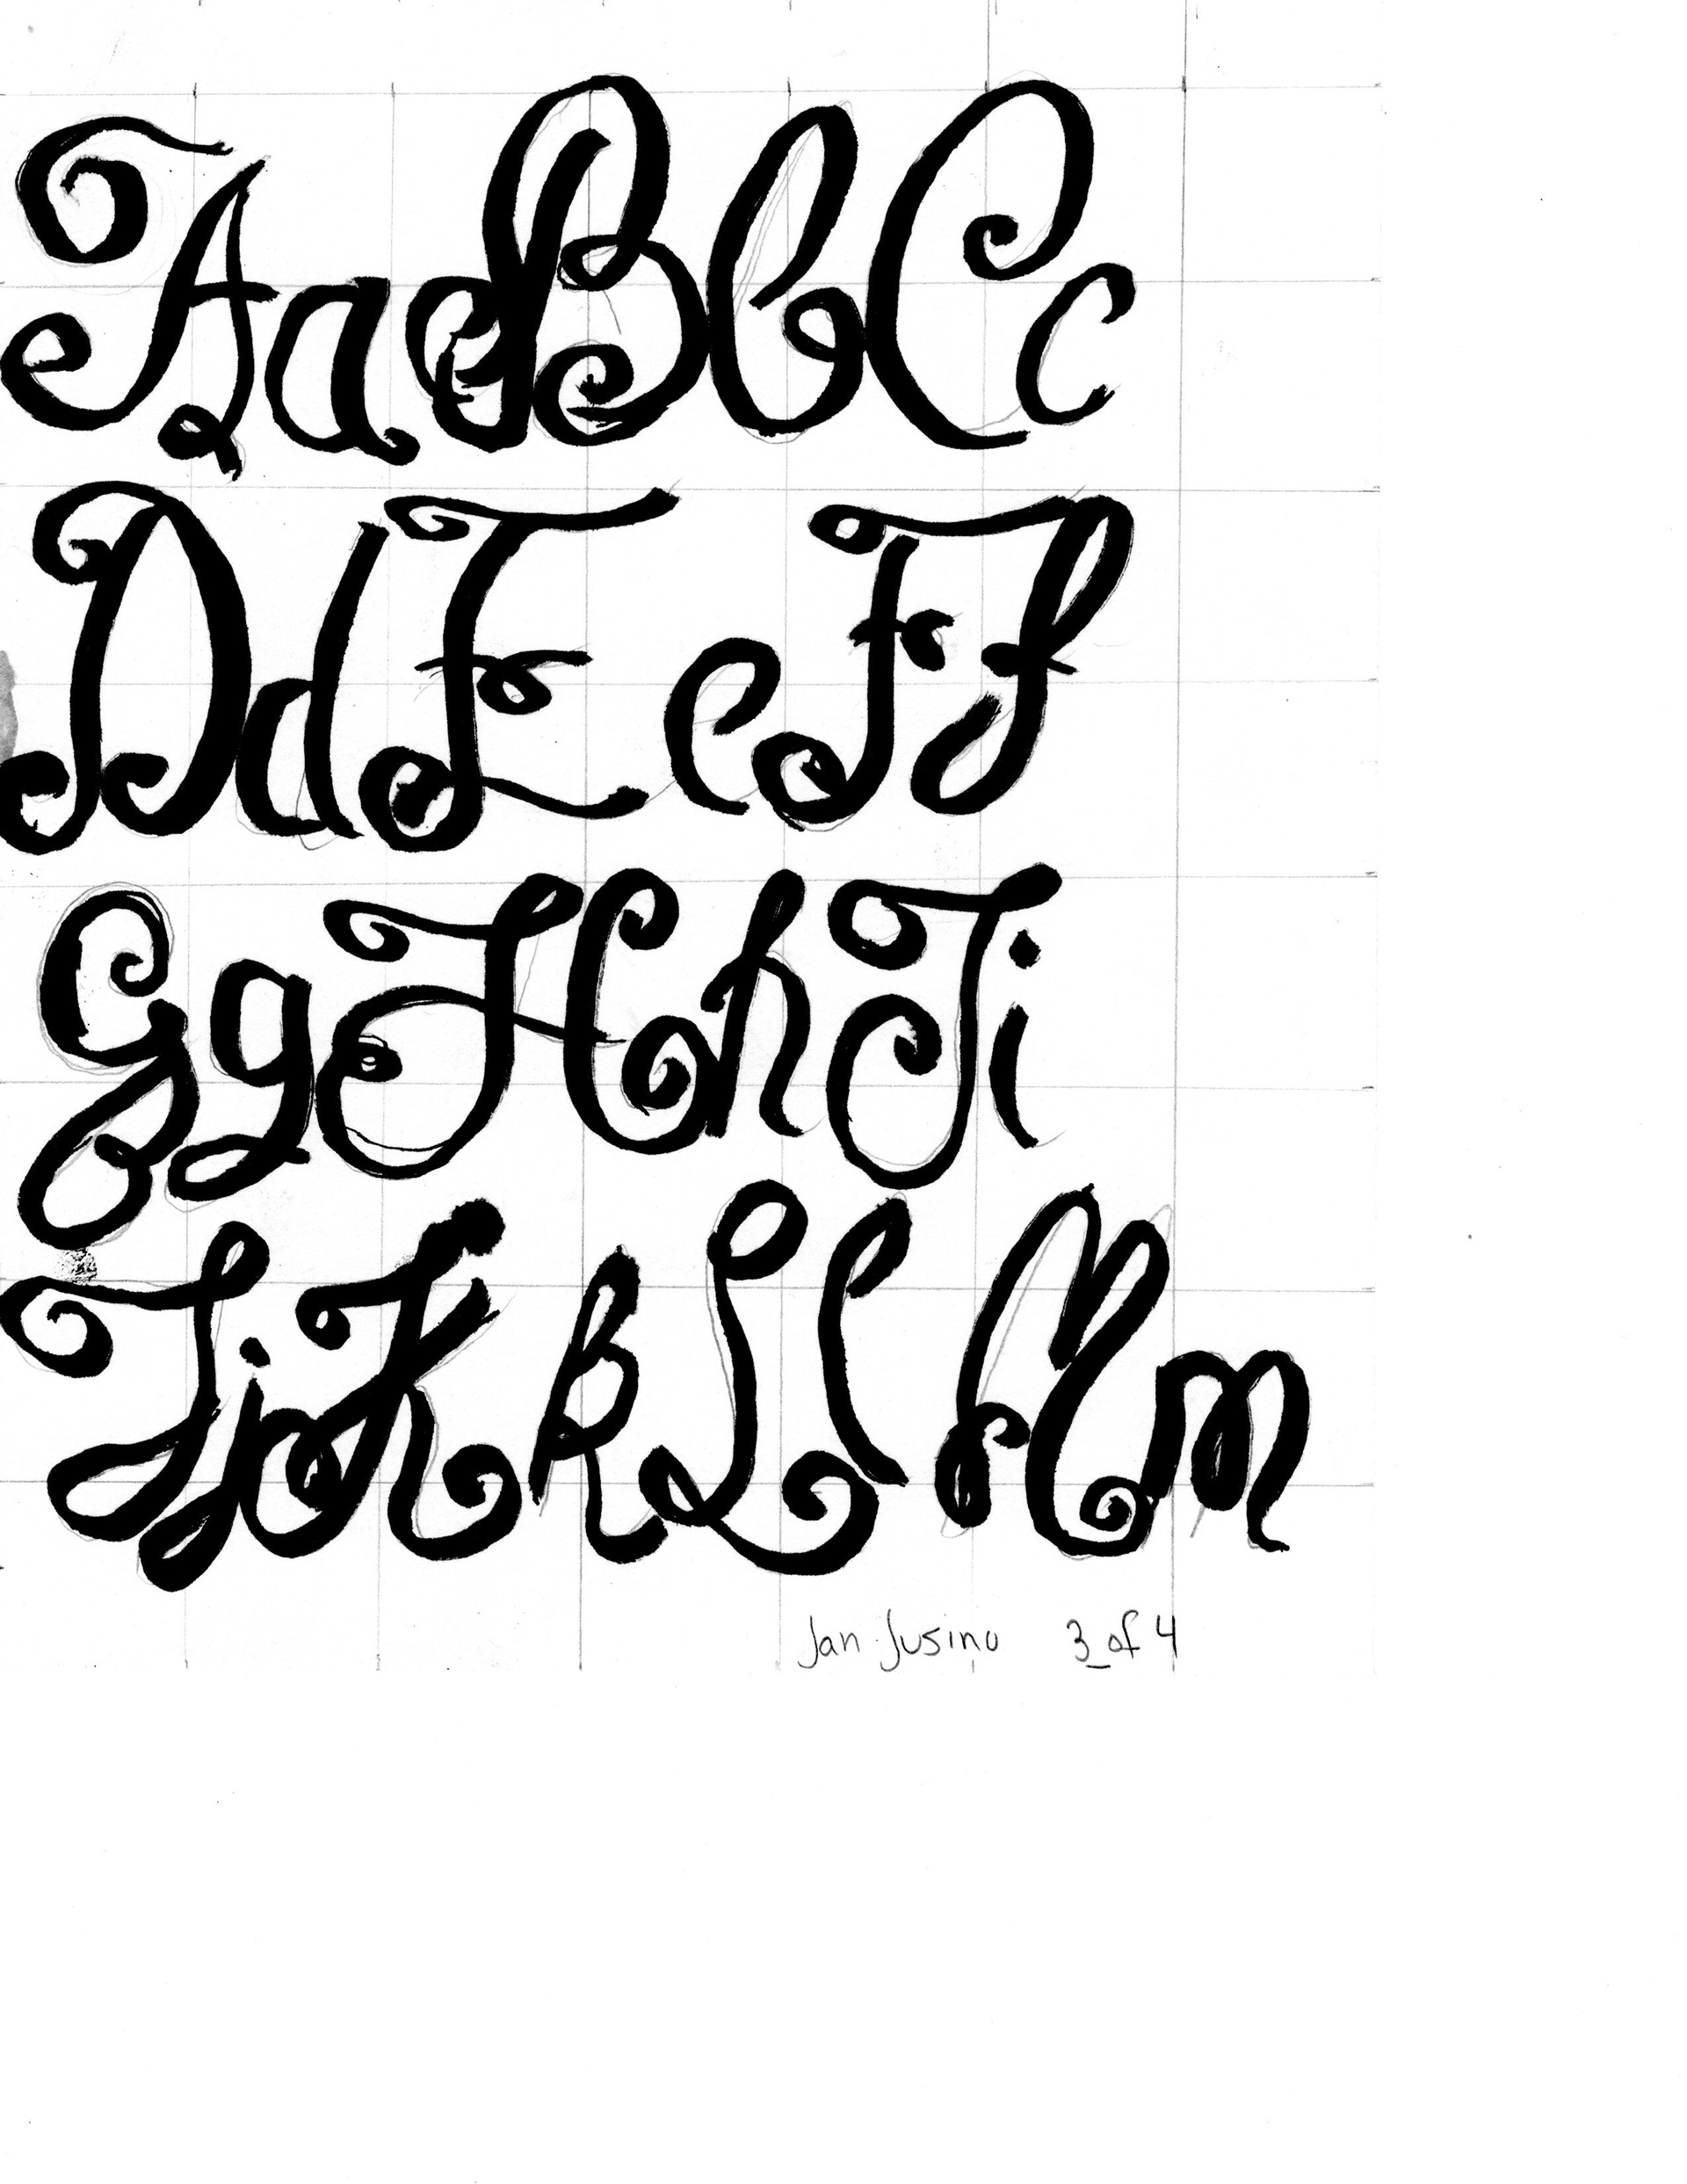 Aa Bb Cc
Dd Ee Ff
Gg Hh Ii
Jj Kk Ll Mm
Jan Jusino 3 of 4